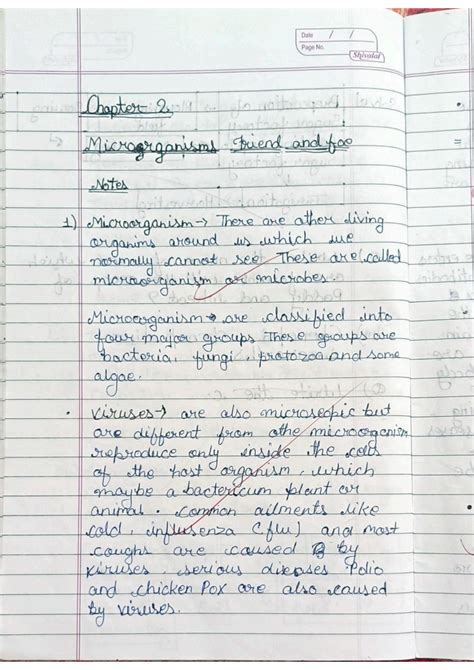 Date / /
Page No.
Shivalal
Chapter 2
Microorganisms Friend and foe
Notes
1) Microorganism → There are other living
organims around us which we
normally cannot see. These are called
microorganism or microbes.
Microorganism → are classified into
four major groups. These groups are
bacteria, fungi, protozoa and some
algae.
• Viruses → are also microscopic but
are different from othe microorganism
reproduce only inside the cells
of the host organism, which
maybe a bactericum plant or
animal. Common ailments like
cold, influsenza (flu) and most
coughs are caused by
viruses. serious diseases Polio
and chicken Pox are also caused
by viruses.